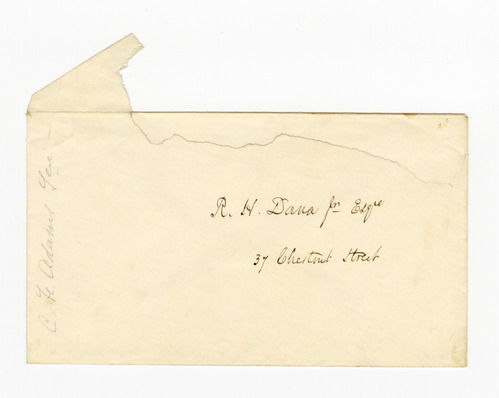 R. H. Dana Jr. Esqre
37 Chestnut Street
C. F. Adams Sen.